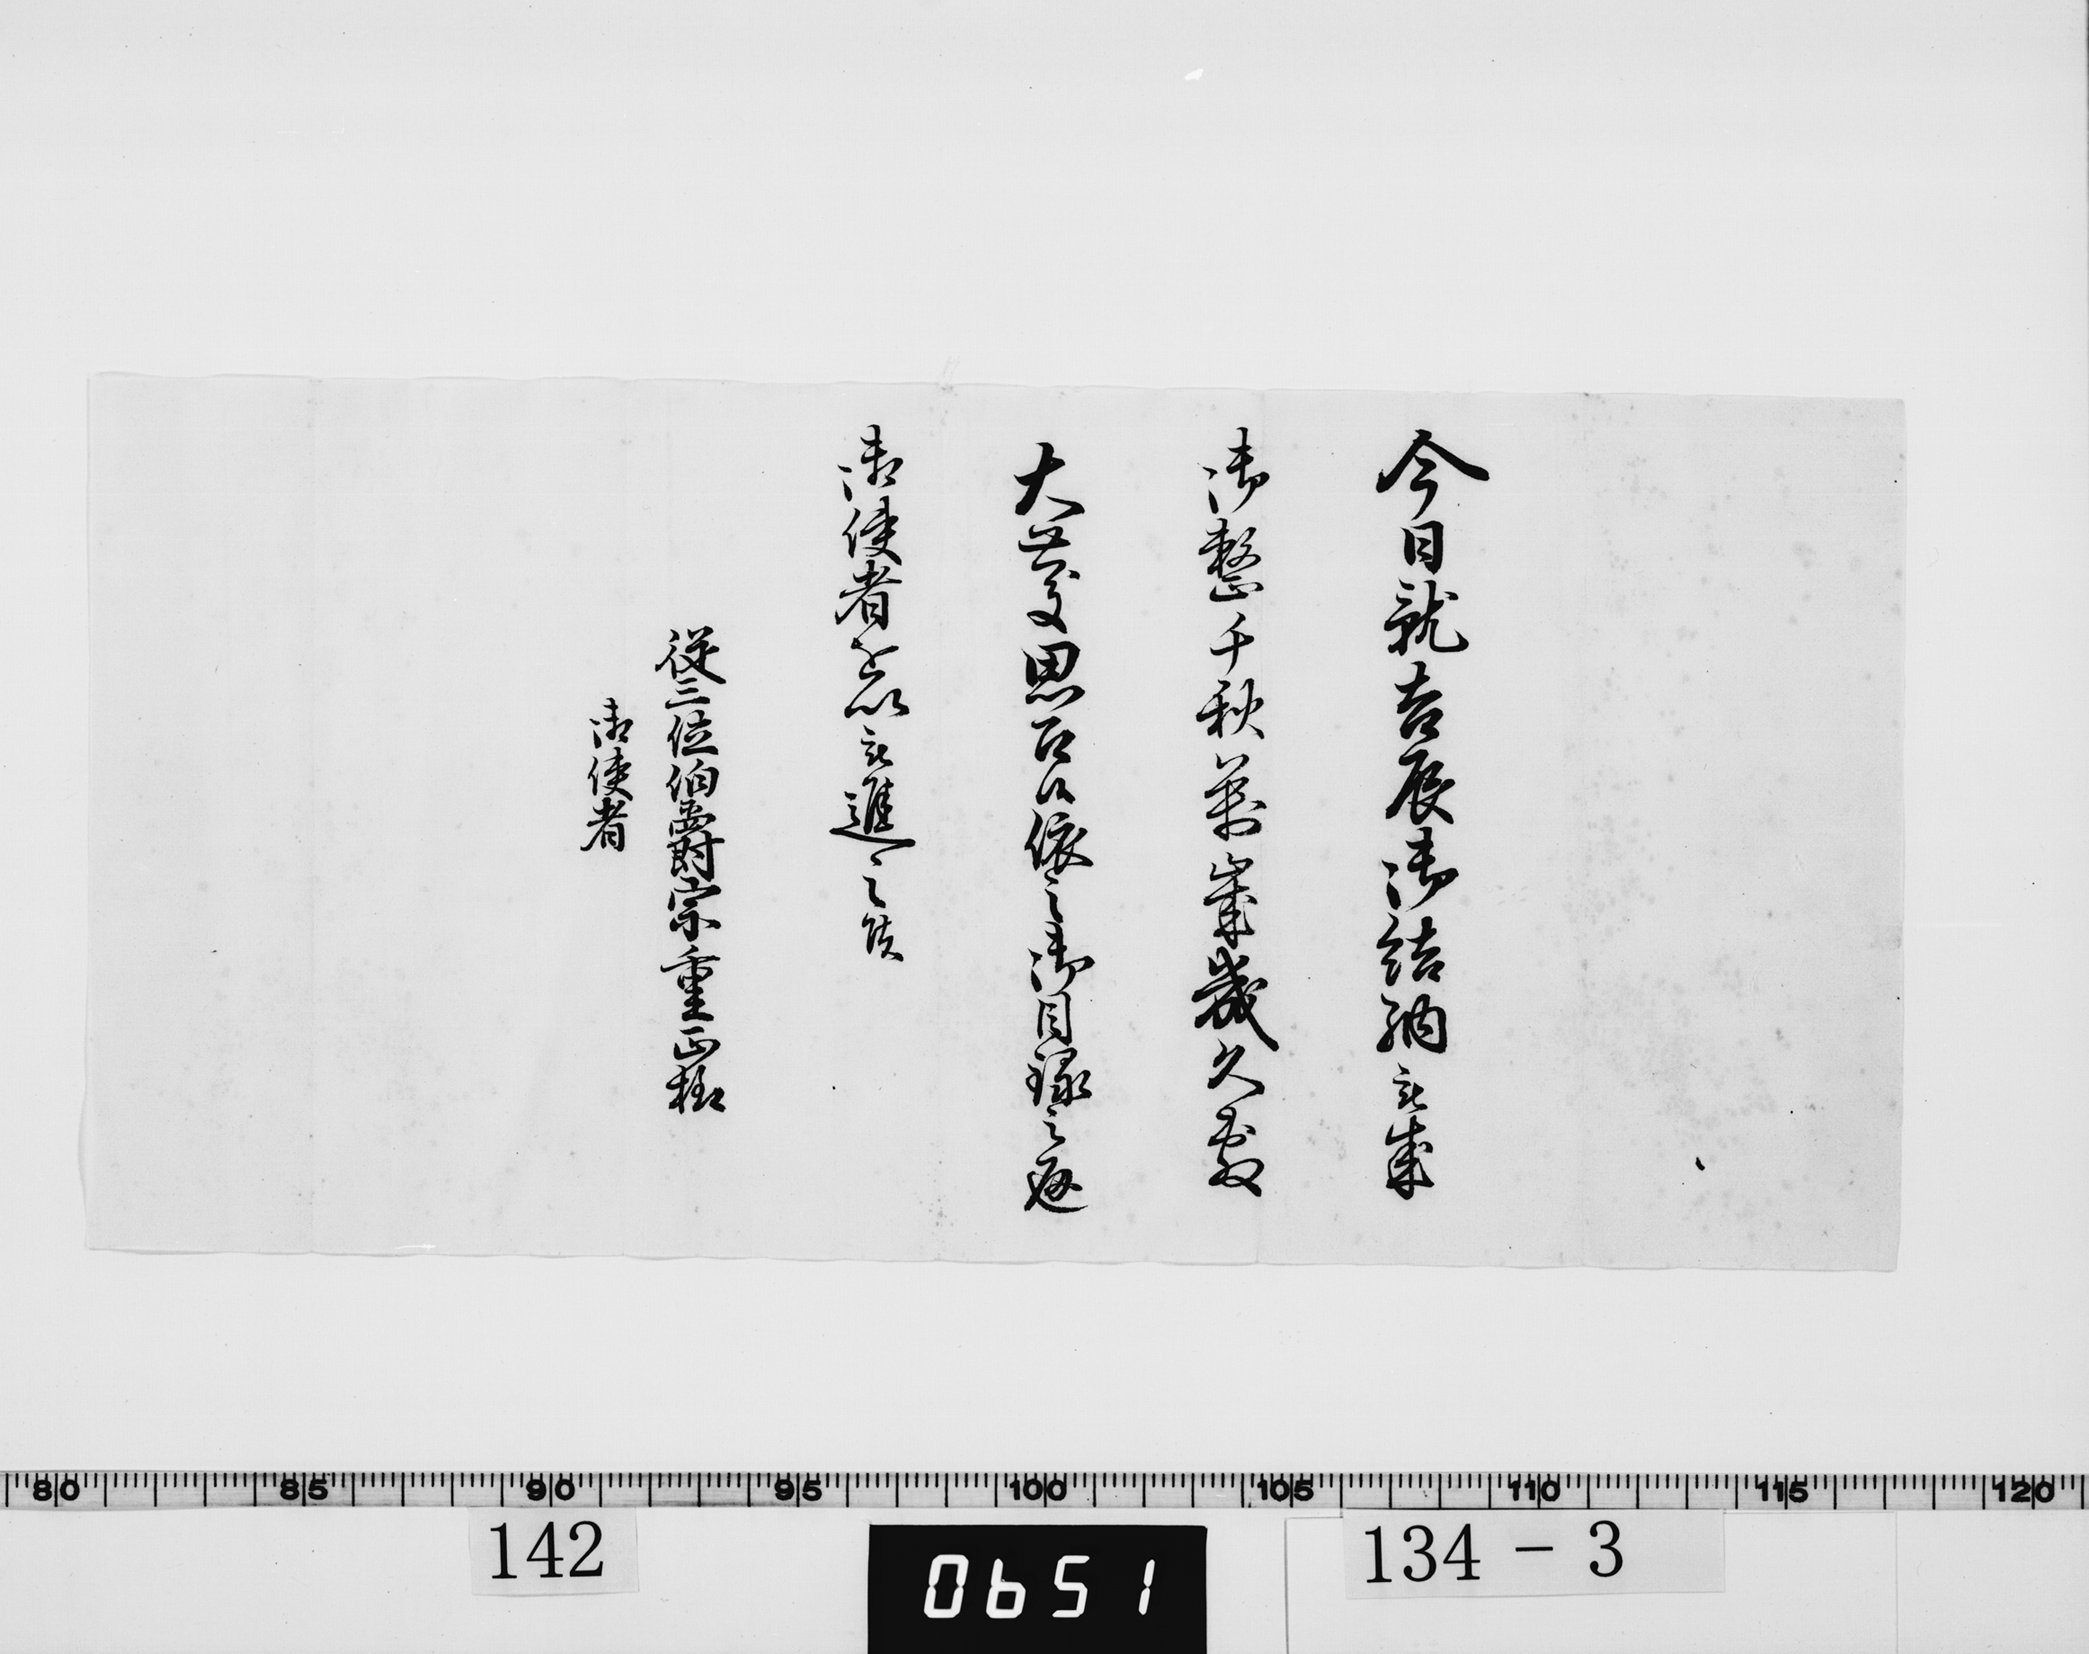 今日就吉辰御結納被成
御整千秋萬歳幾久敷
大慶思召候依之御目録之通
御使者を以被進之候
従三位伯爵宗重正様
御使者
80 85 90 95 100 105 110 115 120
142
0651
134-3